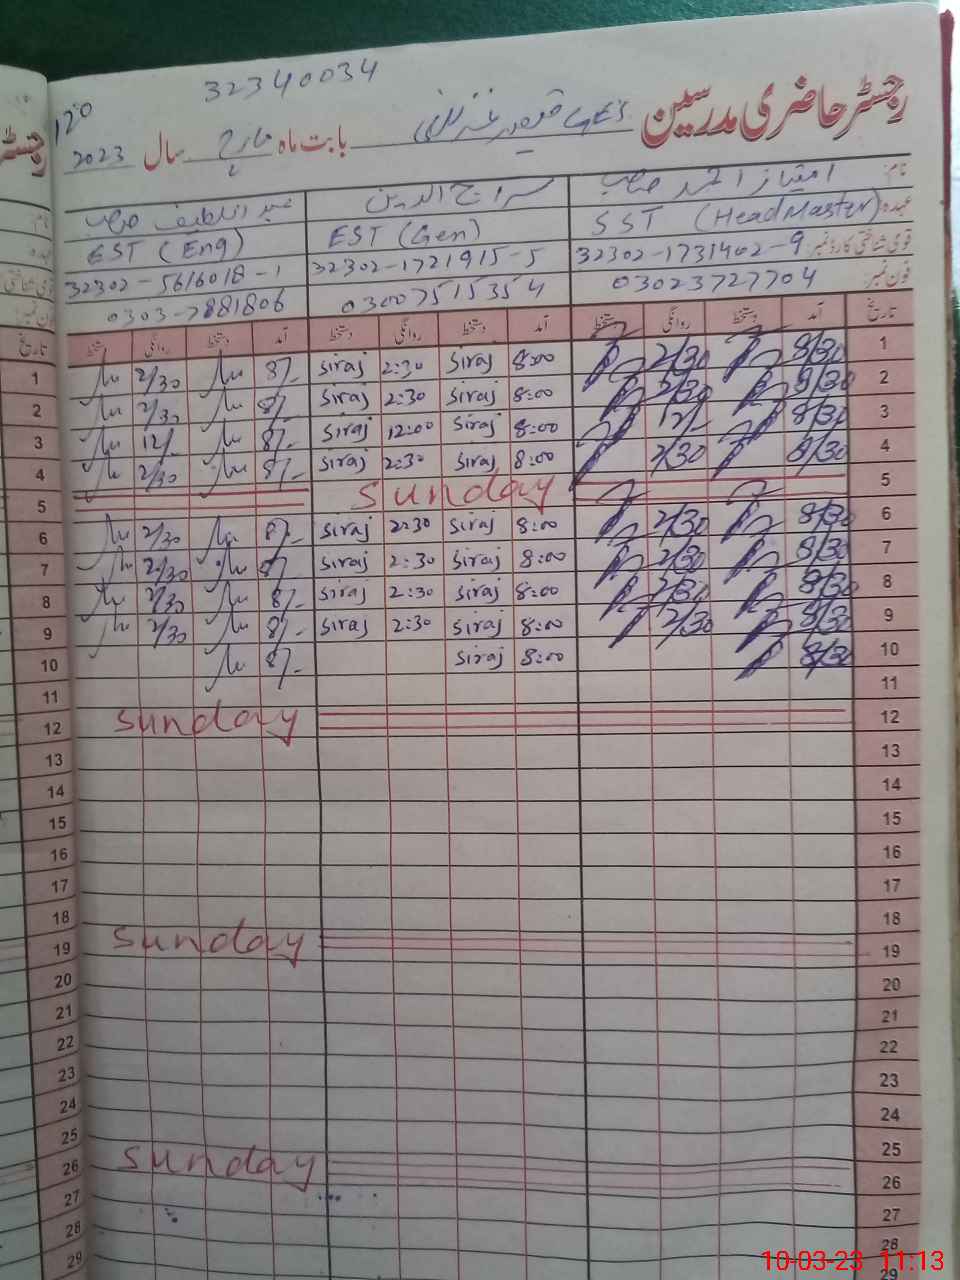 32340034
رجسٹر حاضری مدرسین
GES
بابت ماہ مارچ سال 2023
نام:
امتیاز احمد صاحب
سراج الدین
عبد اللطیف صاحب
عہدہ:
SST (HeadMaster)
EST (Gen)
EST (Eng)
قومی شناختی کارڈ نمبر: 32302-1731402-9
32302-1721915-5
32302-5616018-1
فون نمبر: 03023727704
03007515354
0303-7881806
تاریخ آمد دستخط روانگی دستخط آمد دستخط روانگی دستخط آمد دستخط روانگی دستخط تاریخ
1 8/30 2/30 8:00 Siraj 2:30 Siraj 8/- 2/30 1
2 8/30 2/30 8:00 Siraj 2:30 Siraj 8/- 2/30 2
3 8/30 12/- 8:00 Siraj 12:00 Siraj 8/- 12/- 3
4 8/30 2/30 8:00 Siraj 2:30 Siraj 8/- 2/30 4
5 Sunday 5
6 8/30 2/30 8:00 Siraj 2:30 Siraj 8/- 2/30 6
7 8/30 2/30 8:00 Siraj 2:30 Siraj 8/- 2/30 7
8 8/30 2/30 8:00 Siraj 2:30 Siraj 8/- 2/30 8
9 8/30 2/30 8:00 Siraj 2:30 Siraj 8/- 2/30 9
10 8/30 8:00 Siraj 8/- 10
11 11
12 Sunday 12
13 13
14 14
15 15
16 16
17 17
18 18
19 Sunday 19
20 20
21 21
22 22
23 23
24 24
25 25
26 Sunday 26
27 27
28 28
29 29
10-03-23 11:13